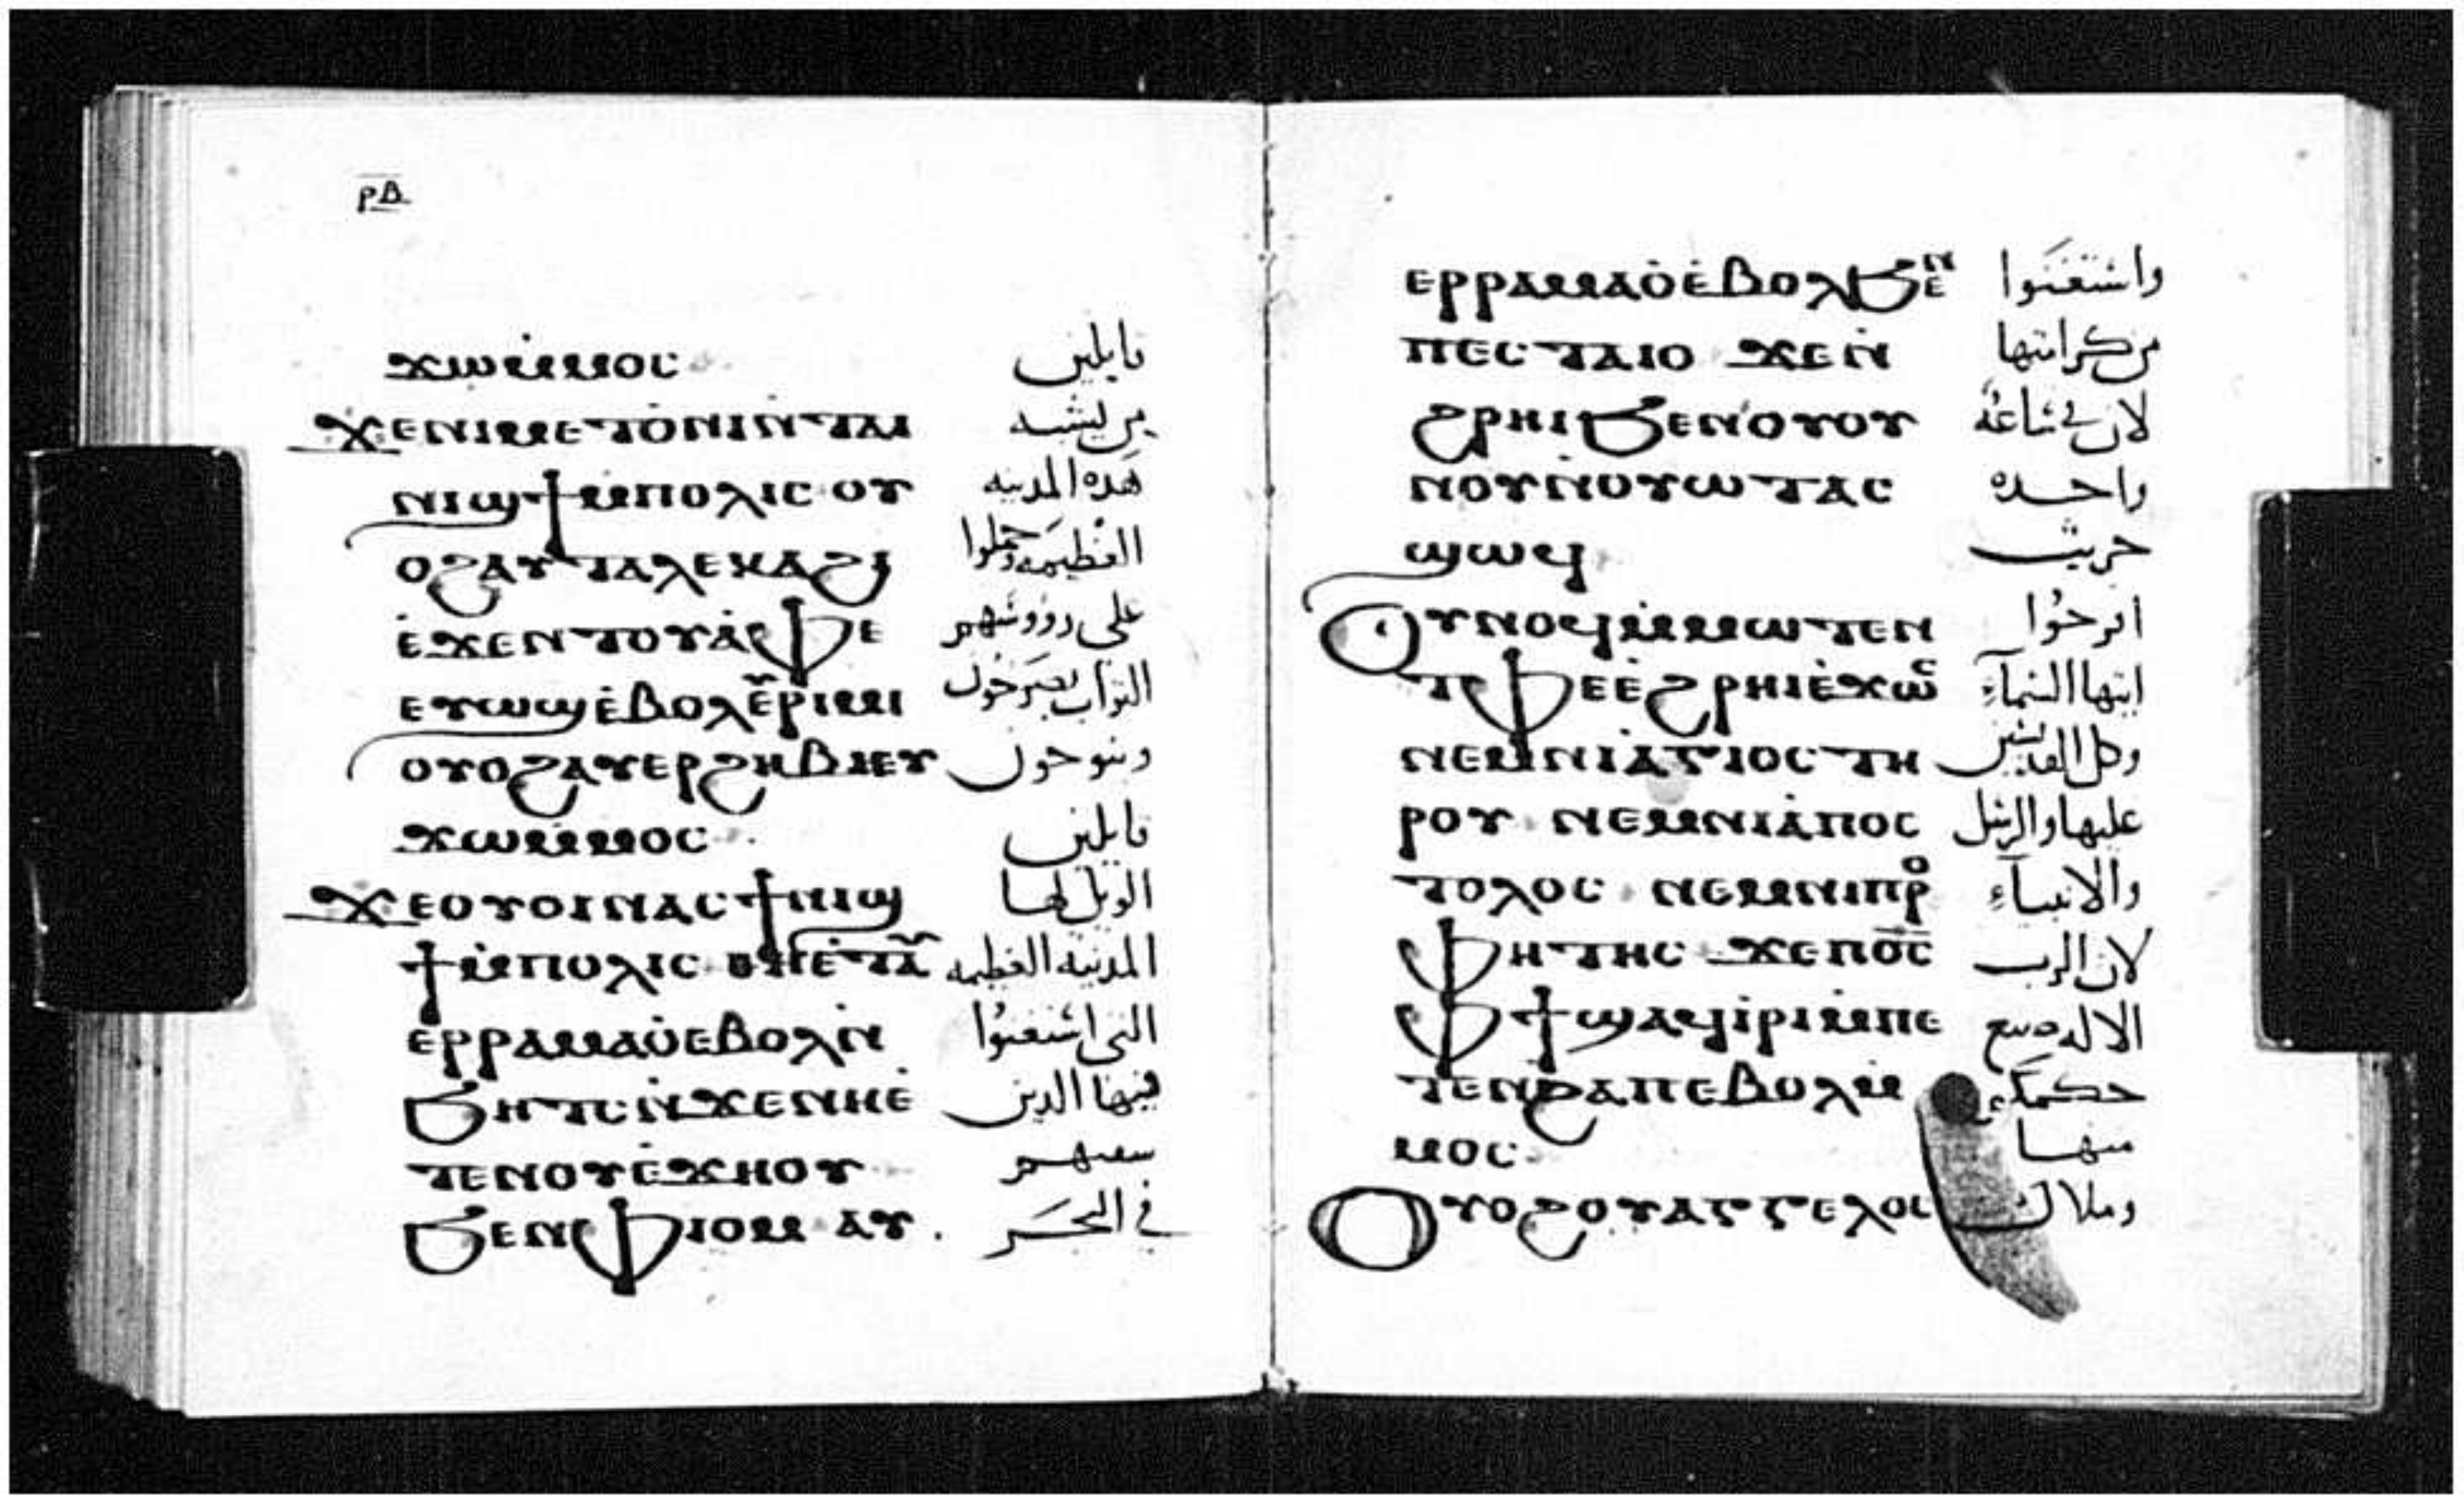 ⲣⲃ
ϫⲱⲙ̇ⲙⲟⲥ قايلين
ϫⲉⲛⲓⲙⲉⲧⲟ̇ⲛⲓⲛ̇ⲧⲁⲓ من يشبه
ⲛⲓϣϯⲙ̇ⲡⲟⲗⲓⲥ ⲟⲩ هده المدينه
ⲟϩⲁⲩⲧⲁⲗⲉⲕⲁϩⲓ العظيمه وحملوا
ⲉ̇ϫⲉⲛⲧⲟⲩⲁ̇ⲫⲉ على رووسهم
ⲉⲩⲱϣⲉ̇ⲃⲟⲗⲉⲩⲣⲓⲙⲓ التراب يصرخون
ⲟⲩⲟϩⲁⲩⲉⲣϩⲏⲃⲓⲉⲩ وينوحون
ϫⲱⲙ̇ⲙⲟⲥ قايلين
ϫⲉⲟⲩⲟⲓⲛⲁⲥϯⲛⲓϣ الويل لها
ϯⲙ̇ⲡⲟⲗⲓⲥ ⲑⲏⲉ̇ⲧⲁⲩ المدينه العظيمه
ⲉⲣⲣⲁⲙⲁⲟ̇ⲉⲃⲟⲗⲛ̇ التي استغنوا
ϧⲏⲧⲥⲛ̇ϫⲉⲛⲏⲉ̇ فيها الدين
ⲧⲉⲛⲟⲩⲉ̇ϫⲏⲟⲩ سفنهم
ϧⲉⲛⲫⲓⲟⲙ ⲁⲩ في البحر
ⲉⲣⲣⲁⲙⲁⲟ̇ⲉ̇ⲃⲟⲗϧⲉⲛ واستغنوا
ⲡⲉⲥⲧⲁⲓⲟ ϫⲉⲛ̇ من كرامتها
ϩⲣⲏⲓϧⲉⲛⲟⲩⲟⲩ لان في ساعة
ⲛⲟⲩⲛ̇ⲟⲩⲱⲧⲁⲥ واحده
ϣⲱϥ خربت
ⲟⲩⲛⲟϥⲙ̇ⲙⲱⲧⲉⲛ افرحوا
ⲧⲫⲉⲉ̇ϩⲣⲏⲓⲉ̇ϫⲱⲥ ايتها السماء
ⲛⲉⲙⲛⲓⲁ̇ⲅⲓⲟⲥⲧⲏ وكل القديسين
ⲣⲟⲩ ⲛⲉⲙⲛⲓⲁ̇ⲡⲟⲥ عليها والرسل
ⲧⲟⲗⲟⲥ ⲛⲉⲙⲛⲓⲡⲣⲟ والانبياء
ⲫⲏⲧⲏⲥ ϫⲉⲡⲟ̅ⲥ̅ لان الرب
ⲫϯϣⲁϥⲓ̇ⲣⲓⲙ̇ⲡⲉ الاله صنع
ⲧⲉⲛϩⲁⲡⲉⲃⲟⲗⲙ̇ حكمكم
ⲙⲟⲥ منها
ⲟⲩⲟϩⲟⲩⲁⲅⲅⲉⲗⲟⲥ وملاك